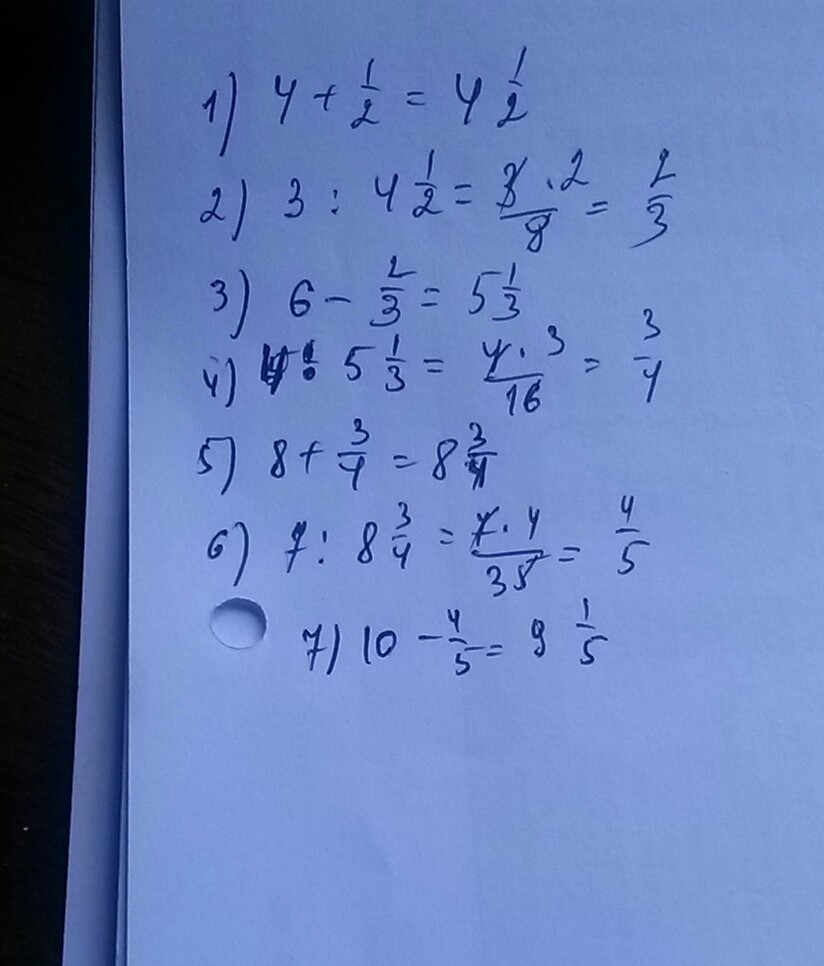 1) 4 + 1/2 = 4 1/2
2) 3 : 4 1/2 = 3 · 2 / 9 = 2/3
3) 6 - 2/3 = 5 1/3
4) 4 : 5 1/3 = 4 · 3 / 16 = 3/4
5) 8 + 3/4 = 8 3/4
6) 7 : 8 3/4 = 7 · 4 / 35 = 4/5
7) 10 - 4/5 = 9 1/5